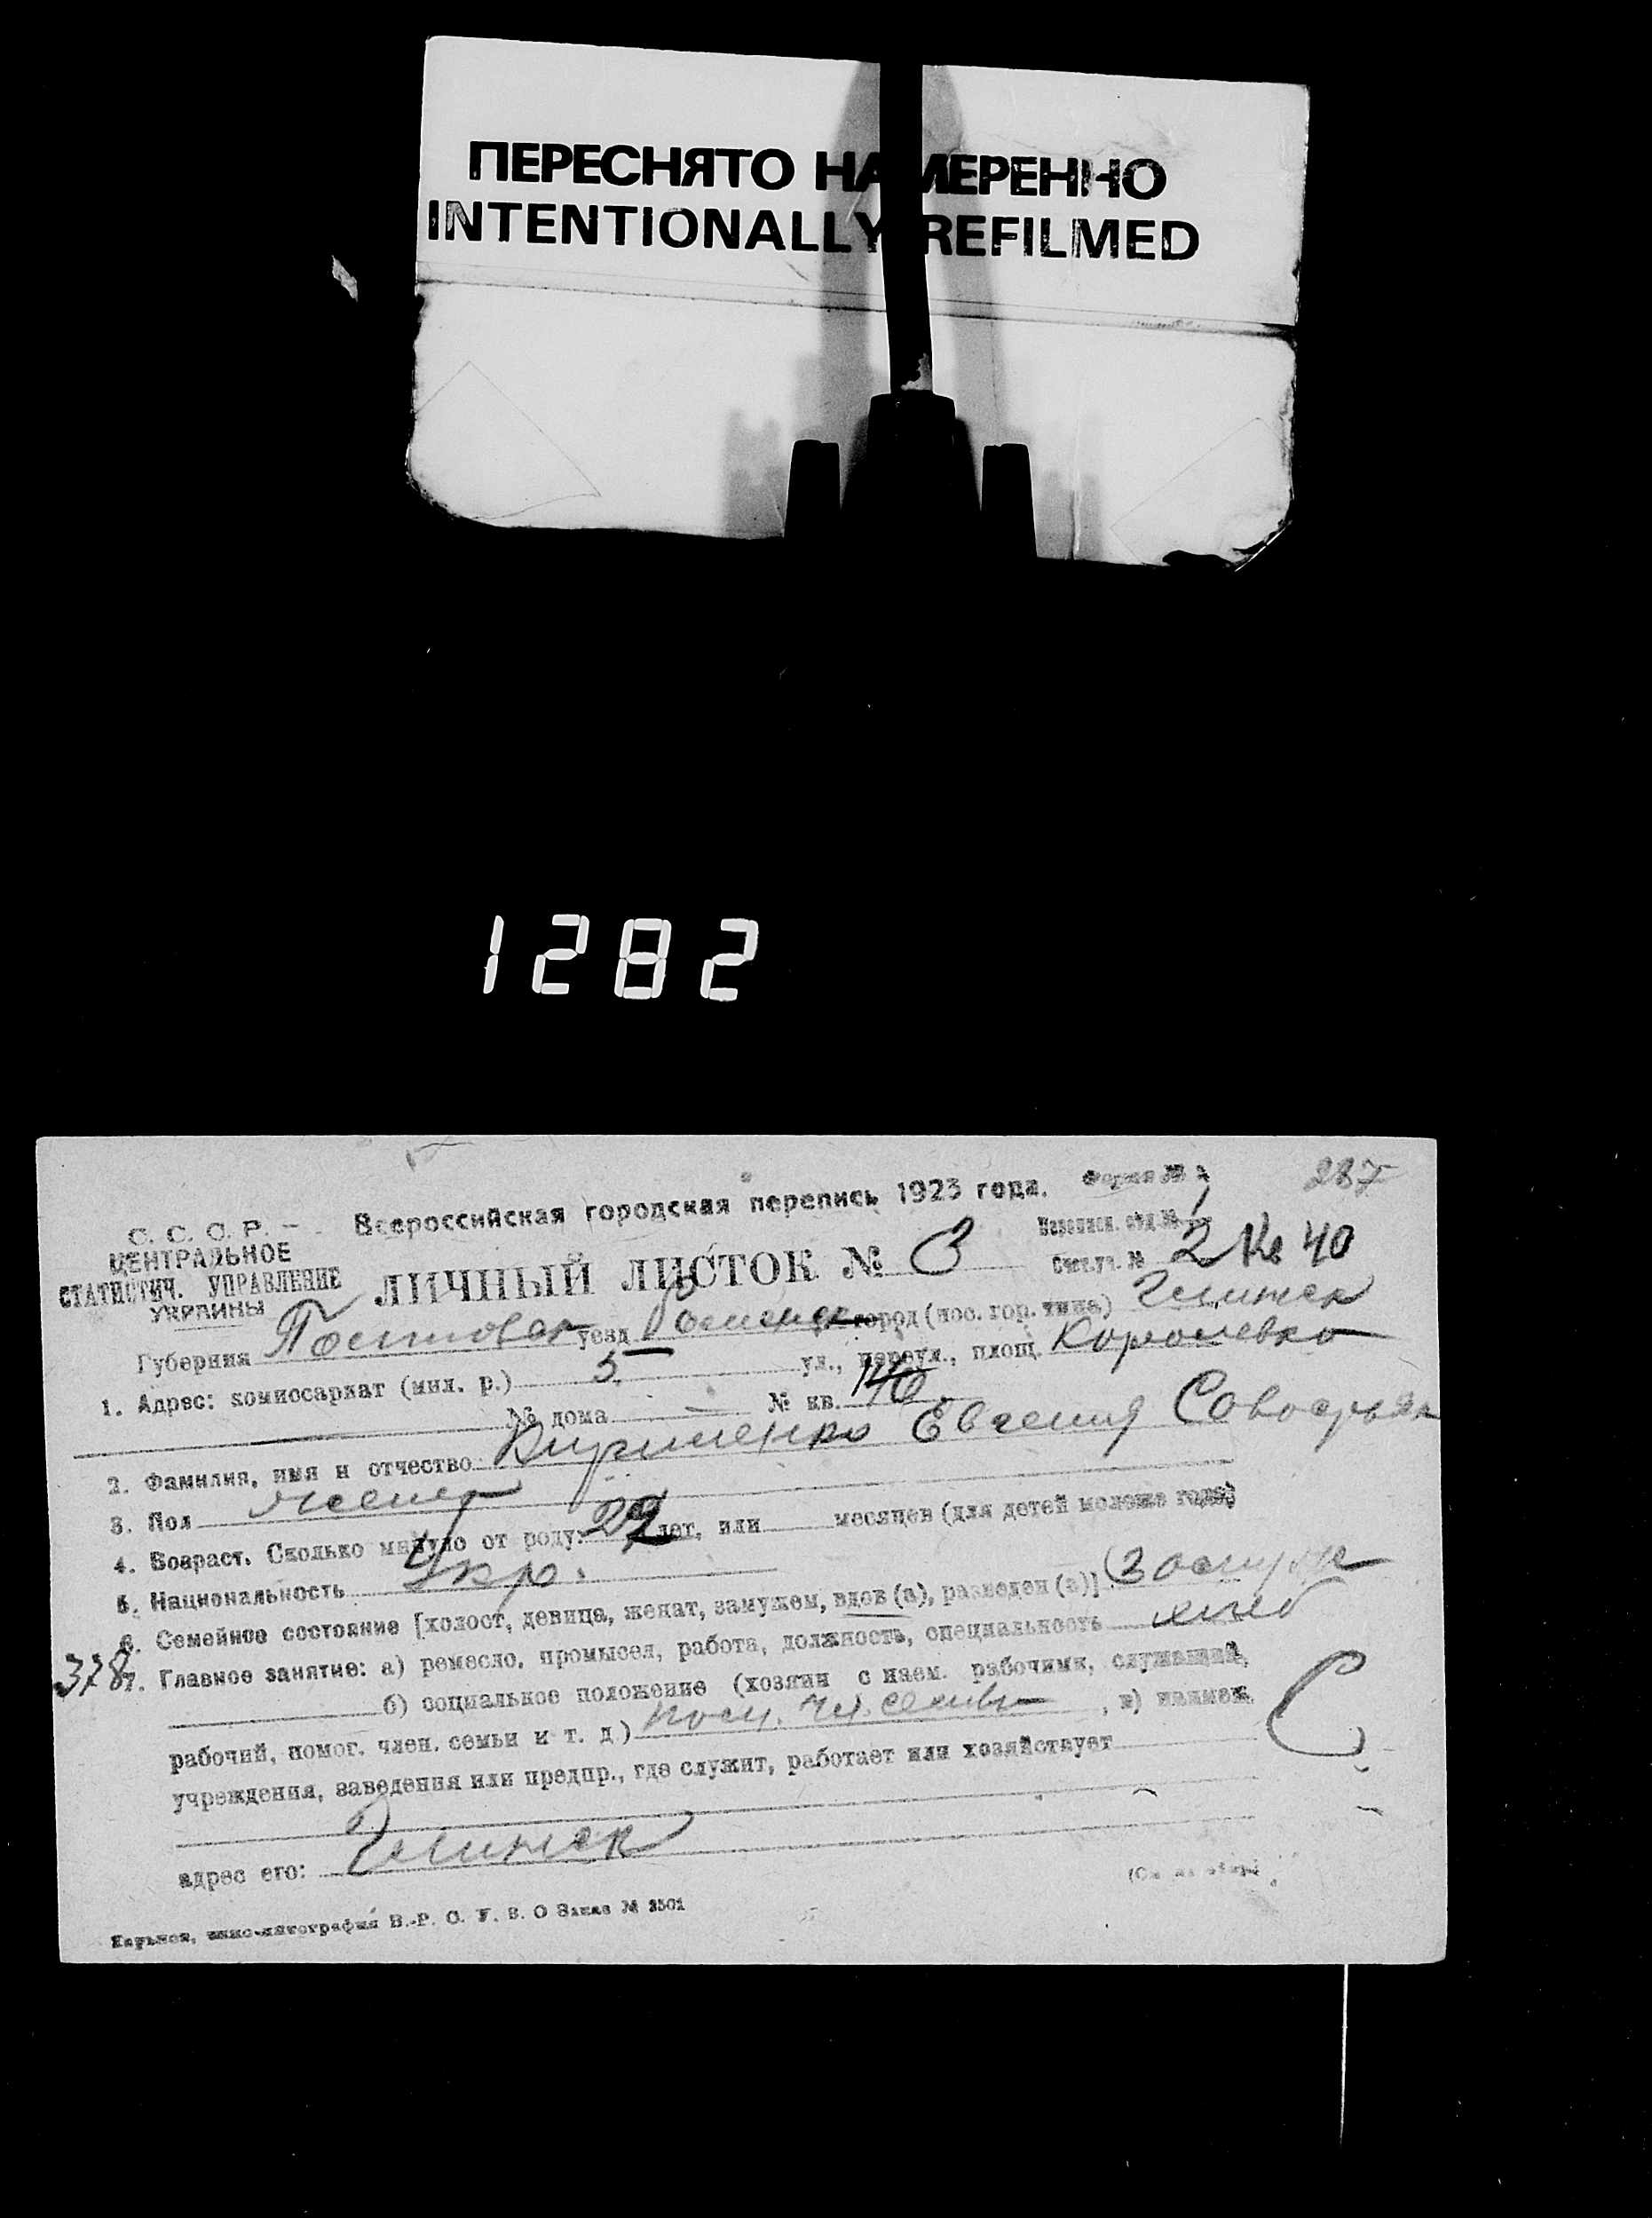 ПЕРЕСНЯТО НАМЕРЕННО
INTENTIONALLY REFILMED
1282
287
Всероссийская городская перепись 1923 года. Форма №
С. С. С. Р.
ЦЕНТРАЛЬНОЕ
СТАТИСТИЧ. УПРАВЛЕНИЕ
УКРАИНЫ
ЛИЧНЫЙ ЛИСТОК № 3
Счет. уч. № 2 № 40
Губерния Полтовск уезд Роменск город (пос. гор. типа) Глинск
1. Адрес: комиссариат (мил. р.) 5 ул., переул., площ.
№ дома — № кв.
2. Фамилия, имя и отчество Евгения
3. Пол женск
4. Возраст. Сколько минуло от роду: лет, или месяцев (для детей моложе года)
5. Национальность Укр.
6. Семейное состояние [холост, девица, женат, замужем, вдов (а), разведен (а)]
378
7. Главное занятие: а) ремесло, промысел, работа, должность, специальность
б) социальное положение (хозяин с наем. рабочими, служащий,
рабочий, помог. член. семьи и т. д) пом. чл. семьи, в) наимен.
учреждения, заведения или предпр., где служит, работает или хозяйствует
адрес его: Глинск